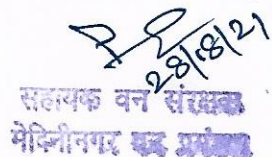 28/8/21
सहायक वन संरक्षक
मेदिनीनगर वन प्रमंडल